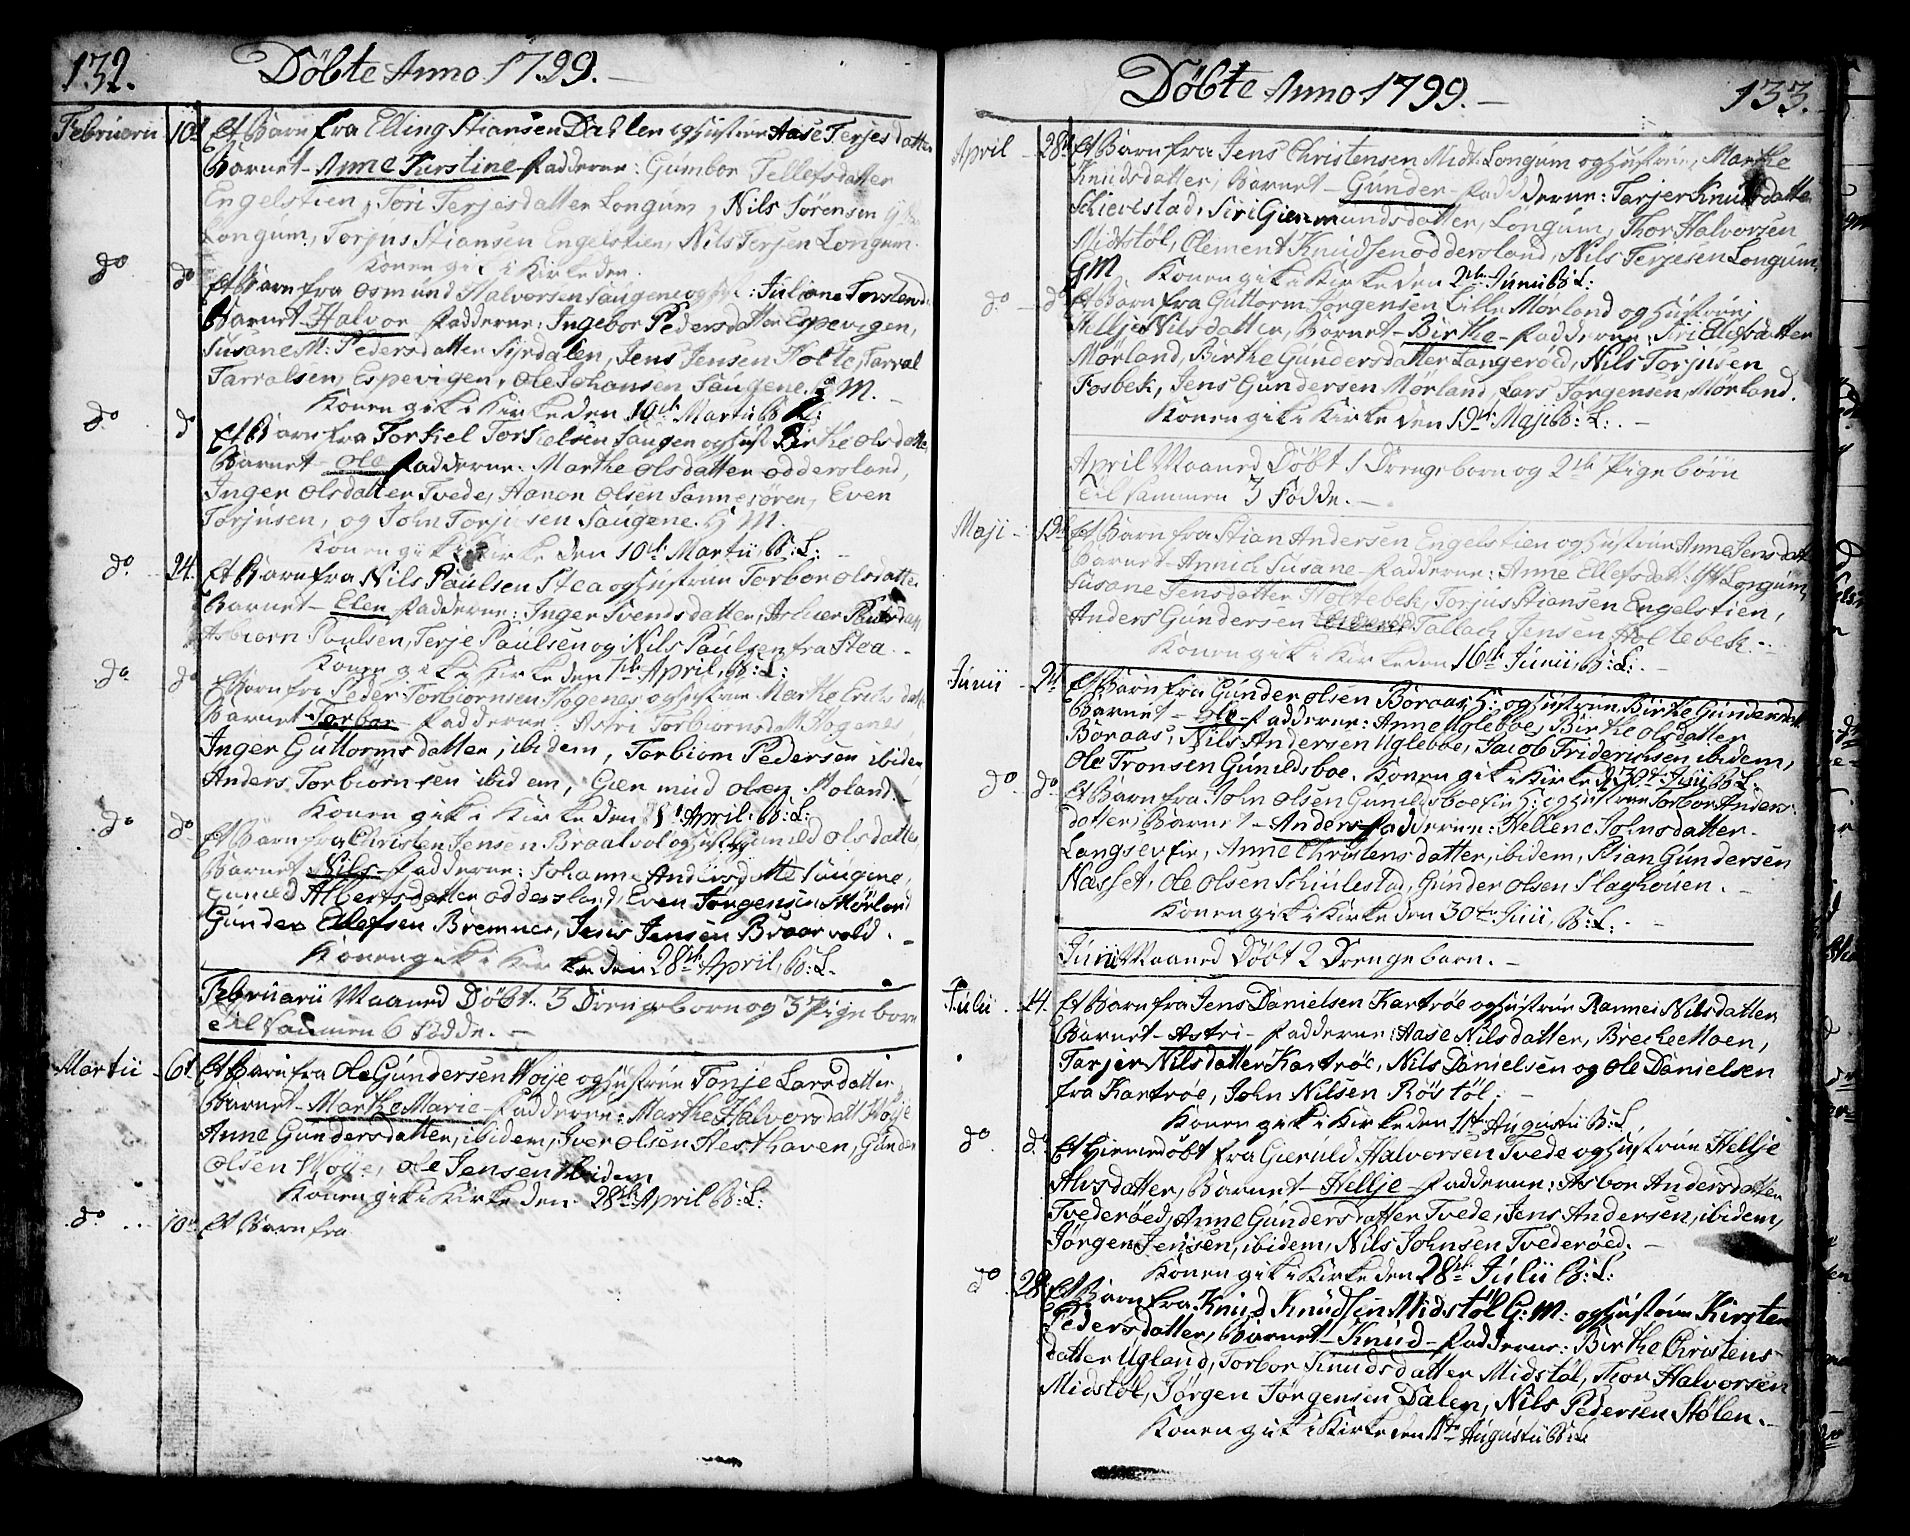 132. Döbte Anno 1799.
Februarii 10de Et Barn fra Elling Stiansen Dahlen og hustrue Aase Terjesdatter
Barnet - Anne Kirstine - Fadderne: Gumbor Tellefsdatter
Engelstien, Tori Terjesdatter Longum, Nils Sörensen
Longum, Torjus Stiansen Engelstien, Nils Terjesen Longum.
Konen gik i Kirke den
do do Et Barn fra Osmund Halvorsen Saugene og H: Juliane Torstensd:
Barnet - Halvor - Fadderne: Ingebor Pedersdatter Espevigen,
Susane M: Pedersdatter Syrdalen, Jens Jensen Holte, Tarral
Tarralsen, Espevigen, Ole Johansen Saugene, G M.
Konen gik i Kirke den 10de Martii B: L:
do do Et Barn fra Torkel Torkelsen Saugen og hust Birthe Olsdatter
Barnet - Ole Fadderne: Marthe Olsdatter Oddersland,
Inger Olsdatter Tvede, Aanon Olsen Sannesören, Even
Torjusen, og John Torjusen Saugene. G M.
Konen gik i Kirke den 10de Martii, B: L:
do 24. Et Barn fra Nils Paulsen Stea og hustrue Torbor Olsdatter
Barnet - Elen Fadderne: Inger Svendsdatter, Paulsdatt
Asbiorn Poulsen, Terje Paulsen og Nils Paulsen fra Stea.
Konen gik i Kirke den 7de April, B: L:
do do Et Barn fra Peder Torbiornsen Hogenes og hustrue Marthe Erichsdatt
Barnet - Torbor - Fadderne: Astri Torbiornsdatt Hogenes,
Inger Guttormsdatter, ibidem, Torbiorn Pedersen ibidem
Anders Torbiornsen ibidem, Giermund Olsen Moland.
Konen gik i Kirke den April: B: L:
do do Et Barn fra Christen Jensen Braatvol og hust Gunild Olsdatter,
Barnet Nils - Fadderne: Johanne Andersdatter Saugene,
Gunild Albertsdatter Oddersland, Even Jörgensen Mörland
Gunder Ellefsen Bremnes, Jens Jensen Braarvold.
Konen gik i Kirke den 28de April, B: L.
Februarii Maaned Döbt: 3 Drengeborn og 3 Pigeborn
til sammen 6 Födde.
Martii 6t. Et Barn fra Ole Gundersen Höÿe og hustrue Tonje Larsdatter
Barnet - Marthe Marie - Fadderne: Marthe Halvorsdatt Höÿe
Anne Gundersdatter, ibidem, Iver Olsen Hesthaven, Gunder
Olsen Höÿe, Ole Jensen ibidem
Konen gik i Kirke den 28de April B: L:
do 10de Et Barn fra
Döbte Anno 1799. 133.
April 28de Et Barn fra Jens Christensen Midt: Longum og hustrue, Marthe
Knudsdatter, Barnet - Gunder - Fadderne: Tarjer Knudsdatter
Skierestad, Siri Giermundsdatter, Longum, Thor Halvorsen
Midtstöl, Clement Knudsen Oddersland, Nils Terjesen Longum,
GM Konen gik i Kirke den 2de Junii B: L:
do do Et Barn fra Guttorm Jörgensen Lille Mörland og hustrue
Hellje Nilsdatter, Barnet - Birthe - Fadderne: Siri Olefsdatter
Mörland, Birthe Gundersdatter Langeröed, Nils Torjusen
Fosbek, Jens Gundersen Mörland, Lars Jörgensen, Mörland.
Konen gik i Kirke den 19de Maji B: L:
April Maaned Döbt 1 Drengeborn og 2de Pigebörn
til sammen 3 Födde.
Maji 12te Et Barn fra Stian Andersen Engelstien og hustrue Anne Jensdatt
Barnet - Annich Susane - Fadderne: Anne Ellefsdatt: Longum,
Susane Jensdatter Holtebek, Torjus Stiansen Engelstien,
Anders Gundersen Tallach Jensen Holtebek.
Konen gik i Kirke den 16de Junii, B: L:
Junii 2de Et Barn fra Gunder Olsen Boraas H: og hustrue Birthe Gundersdatt
Barnet - Ole - Fadderne: Anne Ugleboe, Birthe Olsdatter
Boraas, Nils Andersen Ugleboe, Jacob Friderichsen ibidem,
Ole Tronsen Gunildsboe. Konen gik i Kirke d 30te Junii B: L:
do do Et Barn fra John Olsen Gunildsboe og hustrue Torbor Anders-
datter, Barnet - Anders Fadderne: Hellene Johnsdatter
Langsev, Anne Christensdatter, ibidem, Stian Gundersen
Næsset, Ole Olsen Skiulestad, Gunder Olsen Slaghouen.
Konen gik i Kirke den 30te Junii, B: L:
Junii Maaned Döbt 2 Drengebarn.
Julii 14. Et Barn fra Jens Danielsen Kartröe og hustrue Rannei Nilsdatter
Barnet - Astri - Fadderne: Aase Nilsdatter, Brekke Moen,
Tarjer Nilsdatter Kartröe, Nils Danielsen og Ole Danielsen
fra Kartröe, John Nilsen Röstöl,
Konen gik i Kirke den 11te Augustii B: L
do do Et Hiemedöbt fra Gieruld Halvorsen Tvede og hustrue Hellje
Alvsdatter, Barnet - Hellje - Fadderne: Asbor Andersdatter
Tvederöed, Anne Gundersdatter Tvede, Jens Andersen, ibidem,
Jörgen Jensen, ibidem, Nils Johnsen Tvederöed.
Konen gik i Kirke den 28de Julii B: L:
do 28de Et Barn fra Knud Knudsen Midstöl G: M: og hustrue Kirsten
Pedersdatter, Barnet - Knud - Fadderne: Birthe Christens-
datter Ugland, Torbor Knudsdatter Midstöl, Thor Halvorsen
Midstöl, Jörgen Jörgensen Dalen, Nils Pedersen Stölen.
Konen gik i Kirke den 11te Augustii B: L